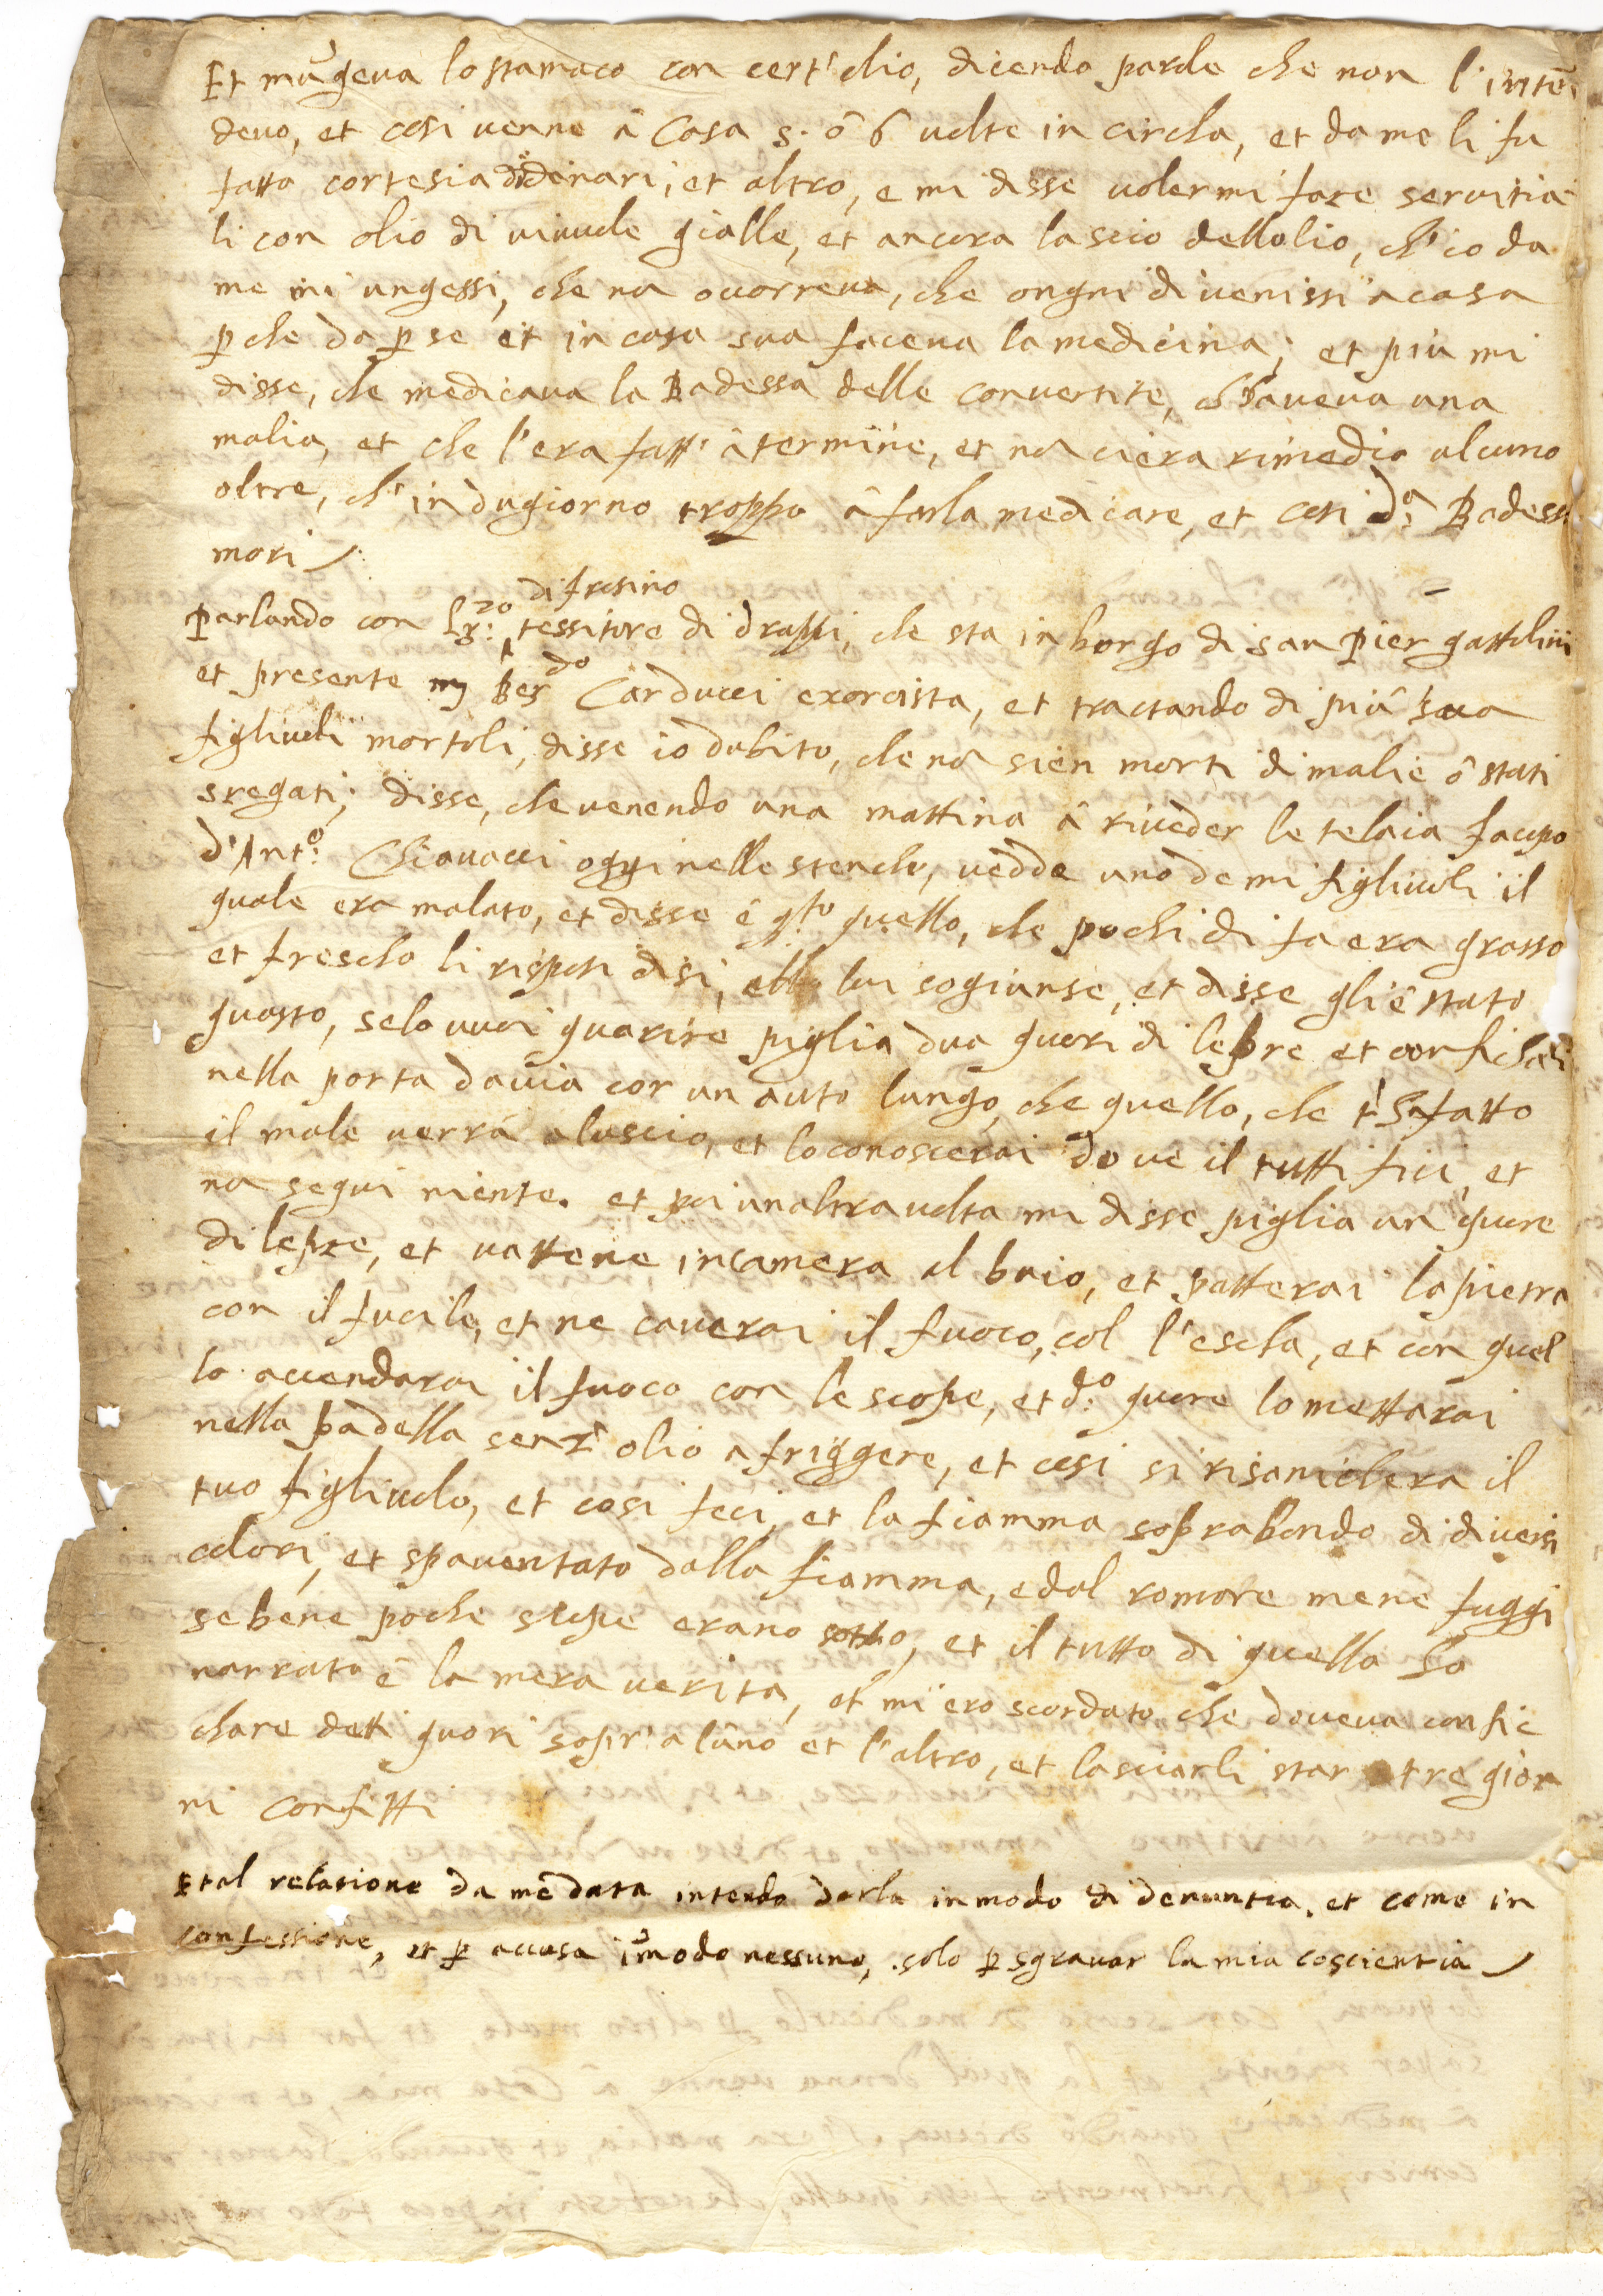 Et mūgeva lostamaco con cert'olio, dicendo parole che non l'intē
devo, et cosi venne â Casa 5. ô 6 volte in circha, et da me li fu
fatto cortesia di denari, et altro, e mi disse volermi fare servitia
li con olio di vivuole gialle, et ancora lascio dellolio, ch'io da
me mi ungessi, che nō ocorreva, che ongni di venissi a casa
p che da p se et in casa sua faceva la medicina; et piu mi
disse, che medicava la Badessa delle convertite, ch'haveva una
malia, et che l'era fatt' â termine, et nō ciera rimedio alcuno
oltre, ch'indugiorno troppo â farla medicare, et cosi d.ª Badessa
mori
Parlando con Lr:zo di frosino tessitore di drappi, che sta in borgo di san Pier gattolini
et presente mͣ Ber.do Carducci exorcista, et tractando di più sua
figliuoli mortoli, disse io dubito, che nō sien morti di malie ô stati
sregati; disse, che venendo una mattina â riveder le telaia Jacopo
d'Ant.º Chiavacci oggi nelle stenche, vedde uno de mi figliuoli il
quale era malato, et disse ê q.to quello, che pochi di fa era grasso
et frescho li risposi di si, lui sogiunse, et disse gli ê stato
guasto, se lo vuoi guarire piglia dua quori di lepre et conficha
nella porta da via cor un auto lungo, che quello, che t'hafatto
il male verrà aluscio, et lo conoscerai dove il tutti fici, et
nō segui niente. et poi unaltra volta mi disse piglia un quore
di lepre, et vattene in camera al buio, et batterai la pietra
con il fucile, et ne caverai il fuoco, col l'escha, et con quel
lo accendarai il fuoco con le scope, et d.º quore lo mettarai
nella padella senz' olio a friggere, et cosi si risanichera il
tuo figliuolo, et cosi feci, et la fiamma soprabondo di diversi
colori, et spaventato dalla fiamma, e dal romore mene fuggi
se bene poche scope erano sotto, et il tutto di quello ho
narrato ê la mera verita, et mi ero scordato che doveva confic
chare detti quori sopr'a lūno et l'altro, et lasciarli star tre gior
ni confitti
Et tal relatione da me data intendo darla in modo di denuntia, et come in
confessione, et p accusa ī modo nessuno, solo p sgravar la mia coscientia